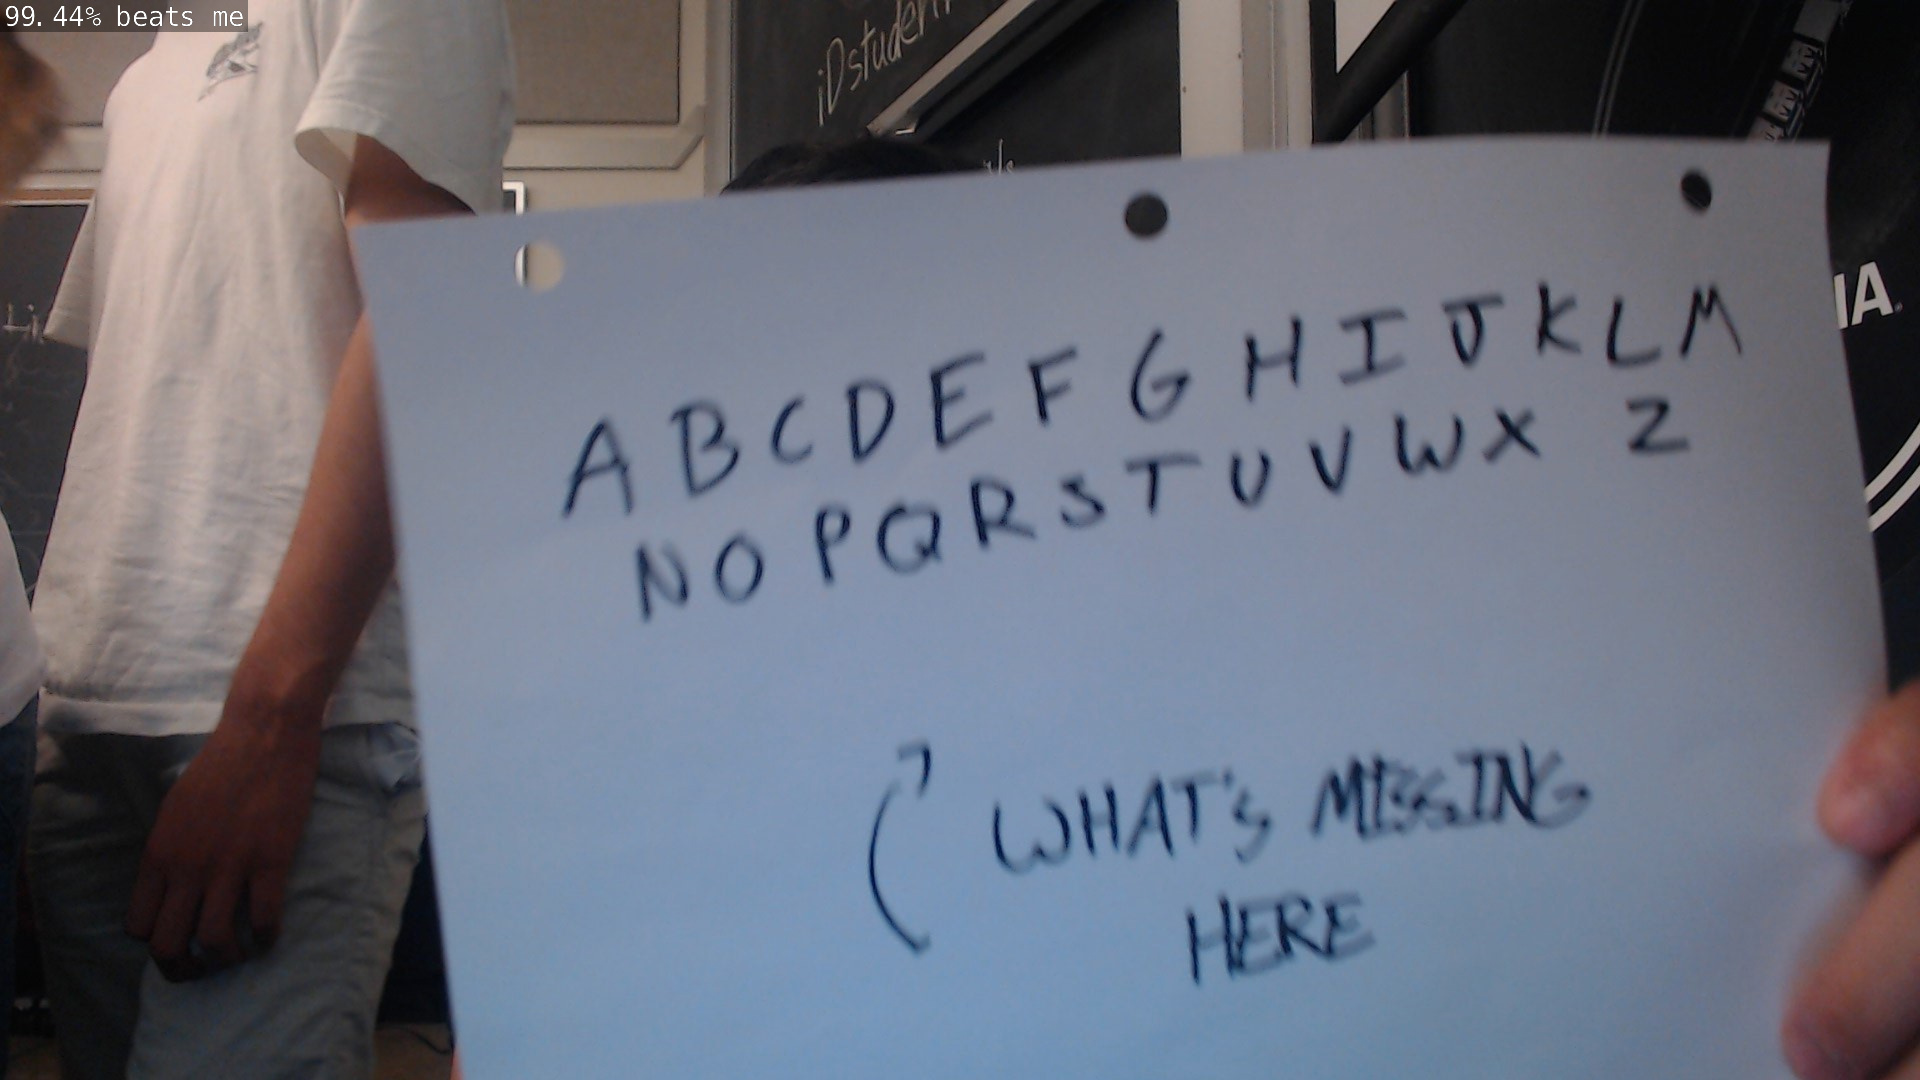 99.44% beats me
iDstudent
IA.
A B C D E F G H I J K L M
N O P Q R S T U V W X Z
WHAT'S MISSING
HERE